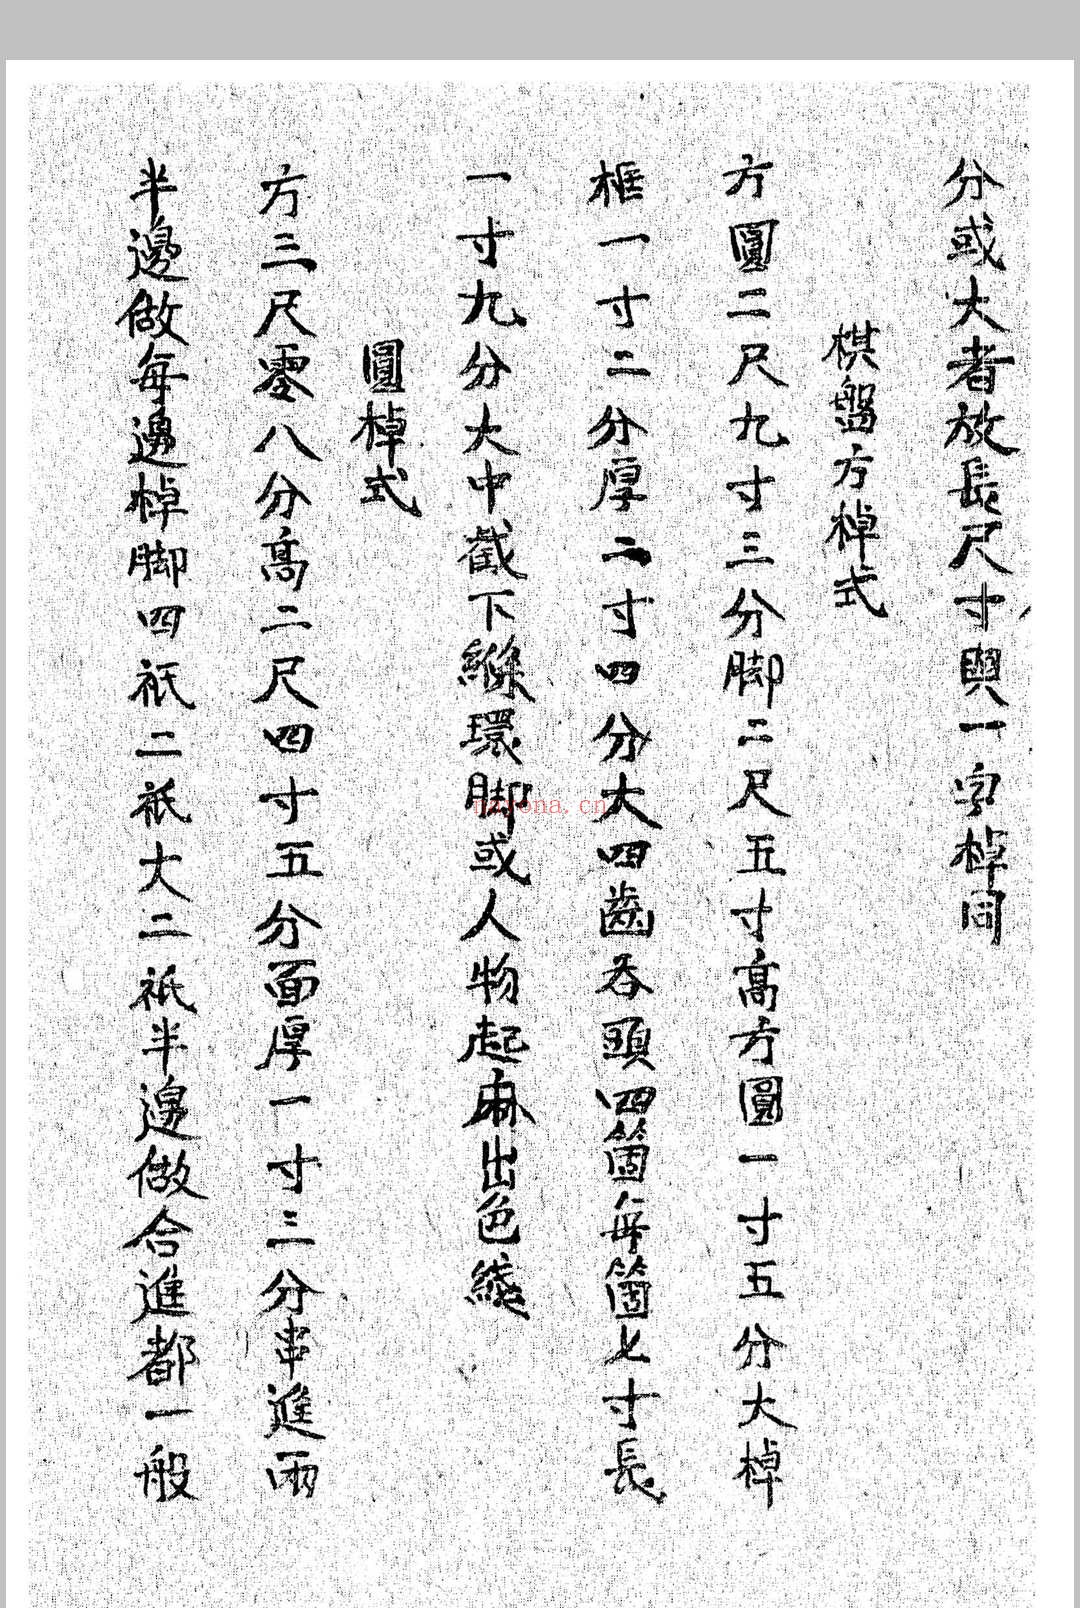 分或大者放長尺寸與一字棹同
棋盤方棹式
方圓二尺九寸三分脚二尺五寸高方圓一寸五分大棹
框一寸二分厚二寸四分大四齒吞頭四箇每箇七寸長
一寸九分大中截下縧環脚或人物起麻出色綫
圓棹式
方三尺零八分高二尺四寸五分面厚一寸三分串進兩
半邊做每邊棹脚四祇二祇大二祇半邊做合進都一般
nayona.cn